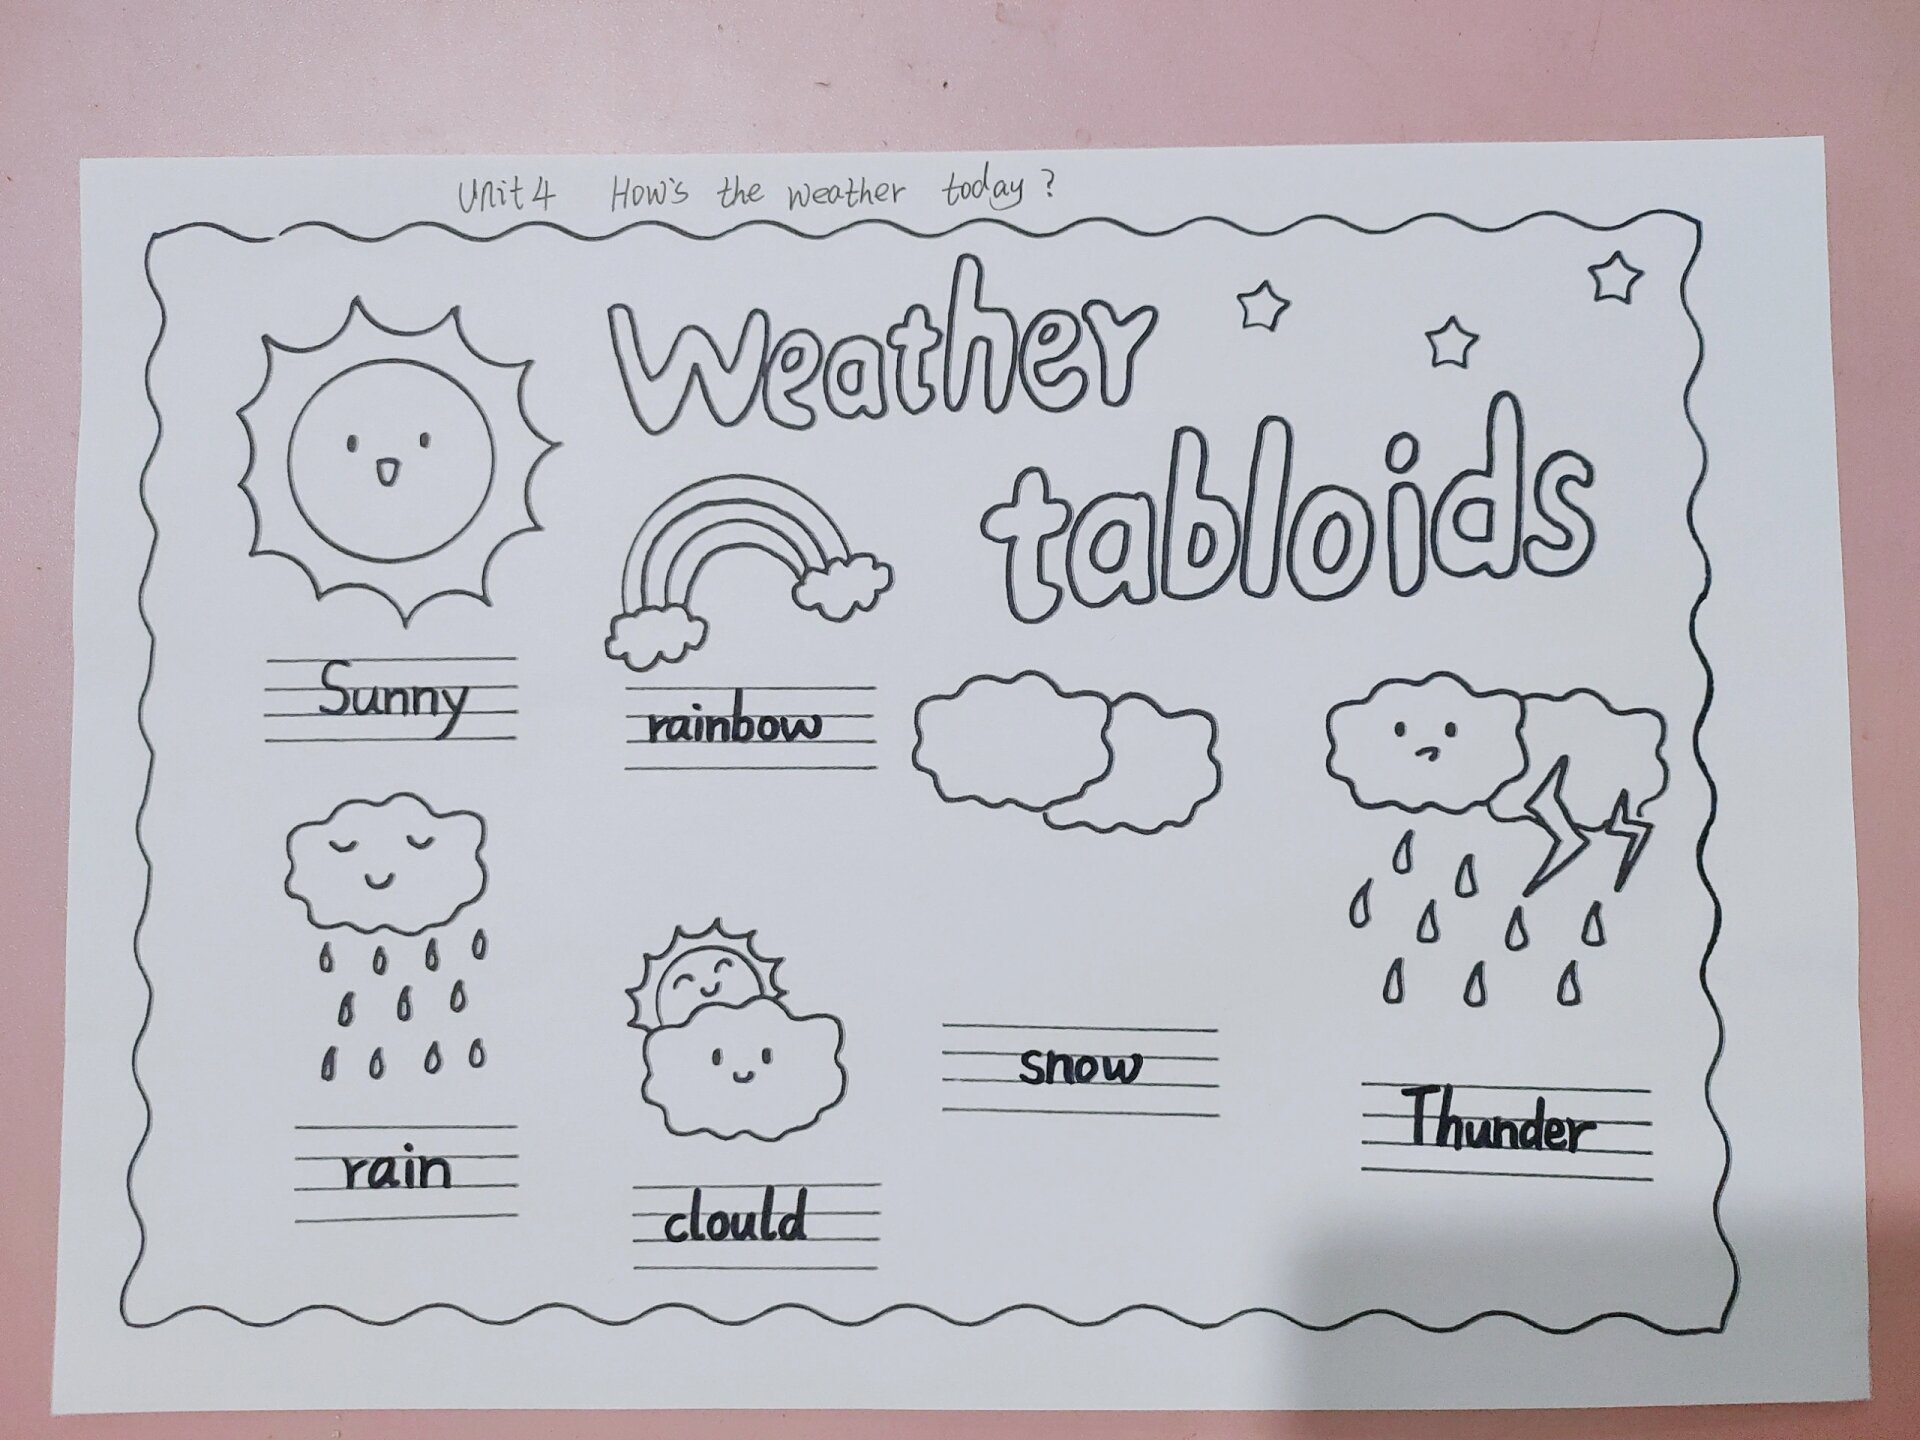 Unit 4 How's the weather today?
Weather
tabloids
Sunny
rainbow
rain
clould
snow
Thunder